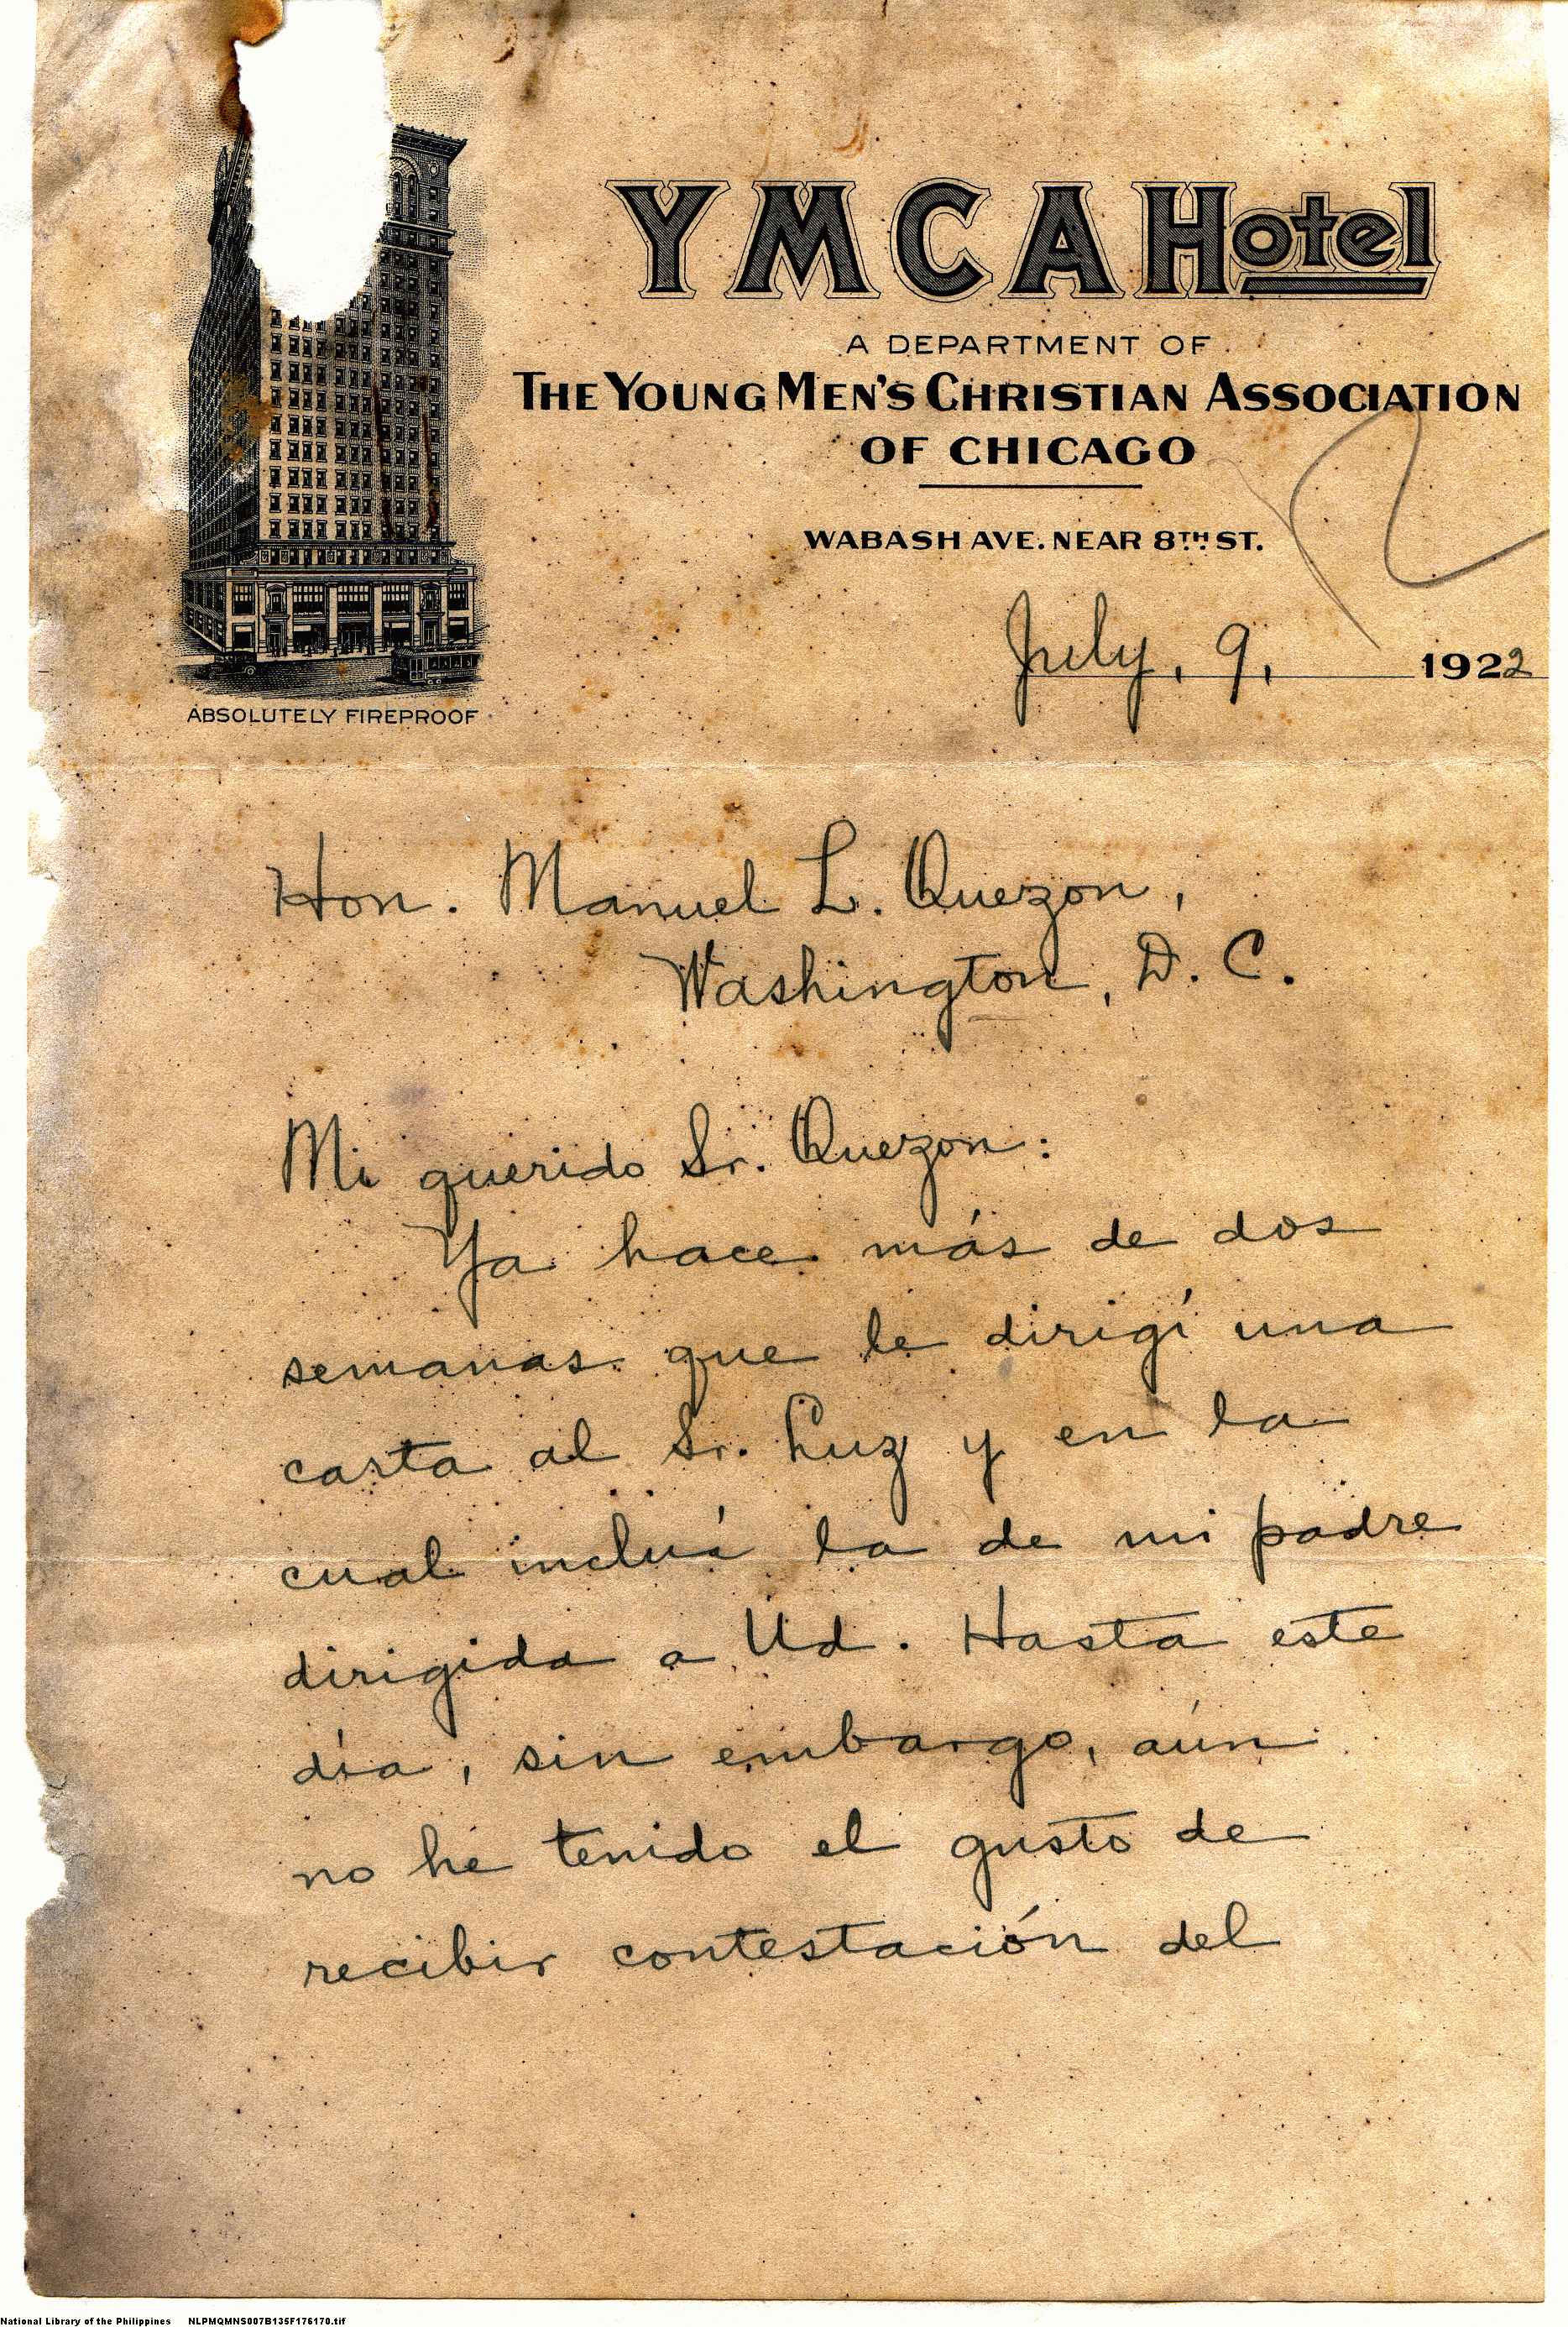 YMCA Hotel
A DEPARTMENT OF
THE YOUNG MEN'S CHRISTIAN ASSOCIATION
OF CHICAGO
WABASH AVE. NEAR 8TH ST.
ABSOLUTELY FIREPROOF
July, 9, 1922
Hon. Manuel L. Quezon,
Washington, D. C.
Mi querido Sr. Quezon:
Ya hace más de dos
semanas que le dirigí una
carta al Sr. Luz y en la
cual incluí la de mi padre
dirigida a Ud. Hasta este
día, sin embargo, aún
no hé tenido el gusto de
recibir contestación del
National Library of the Philippines NLPMQMNS007B135F176170.tif